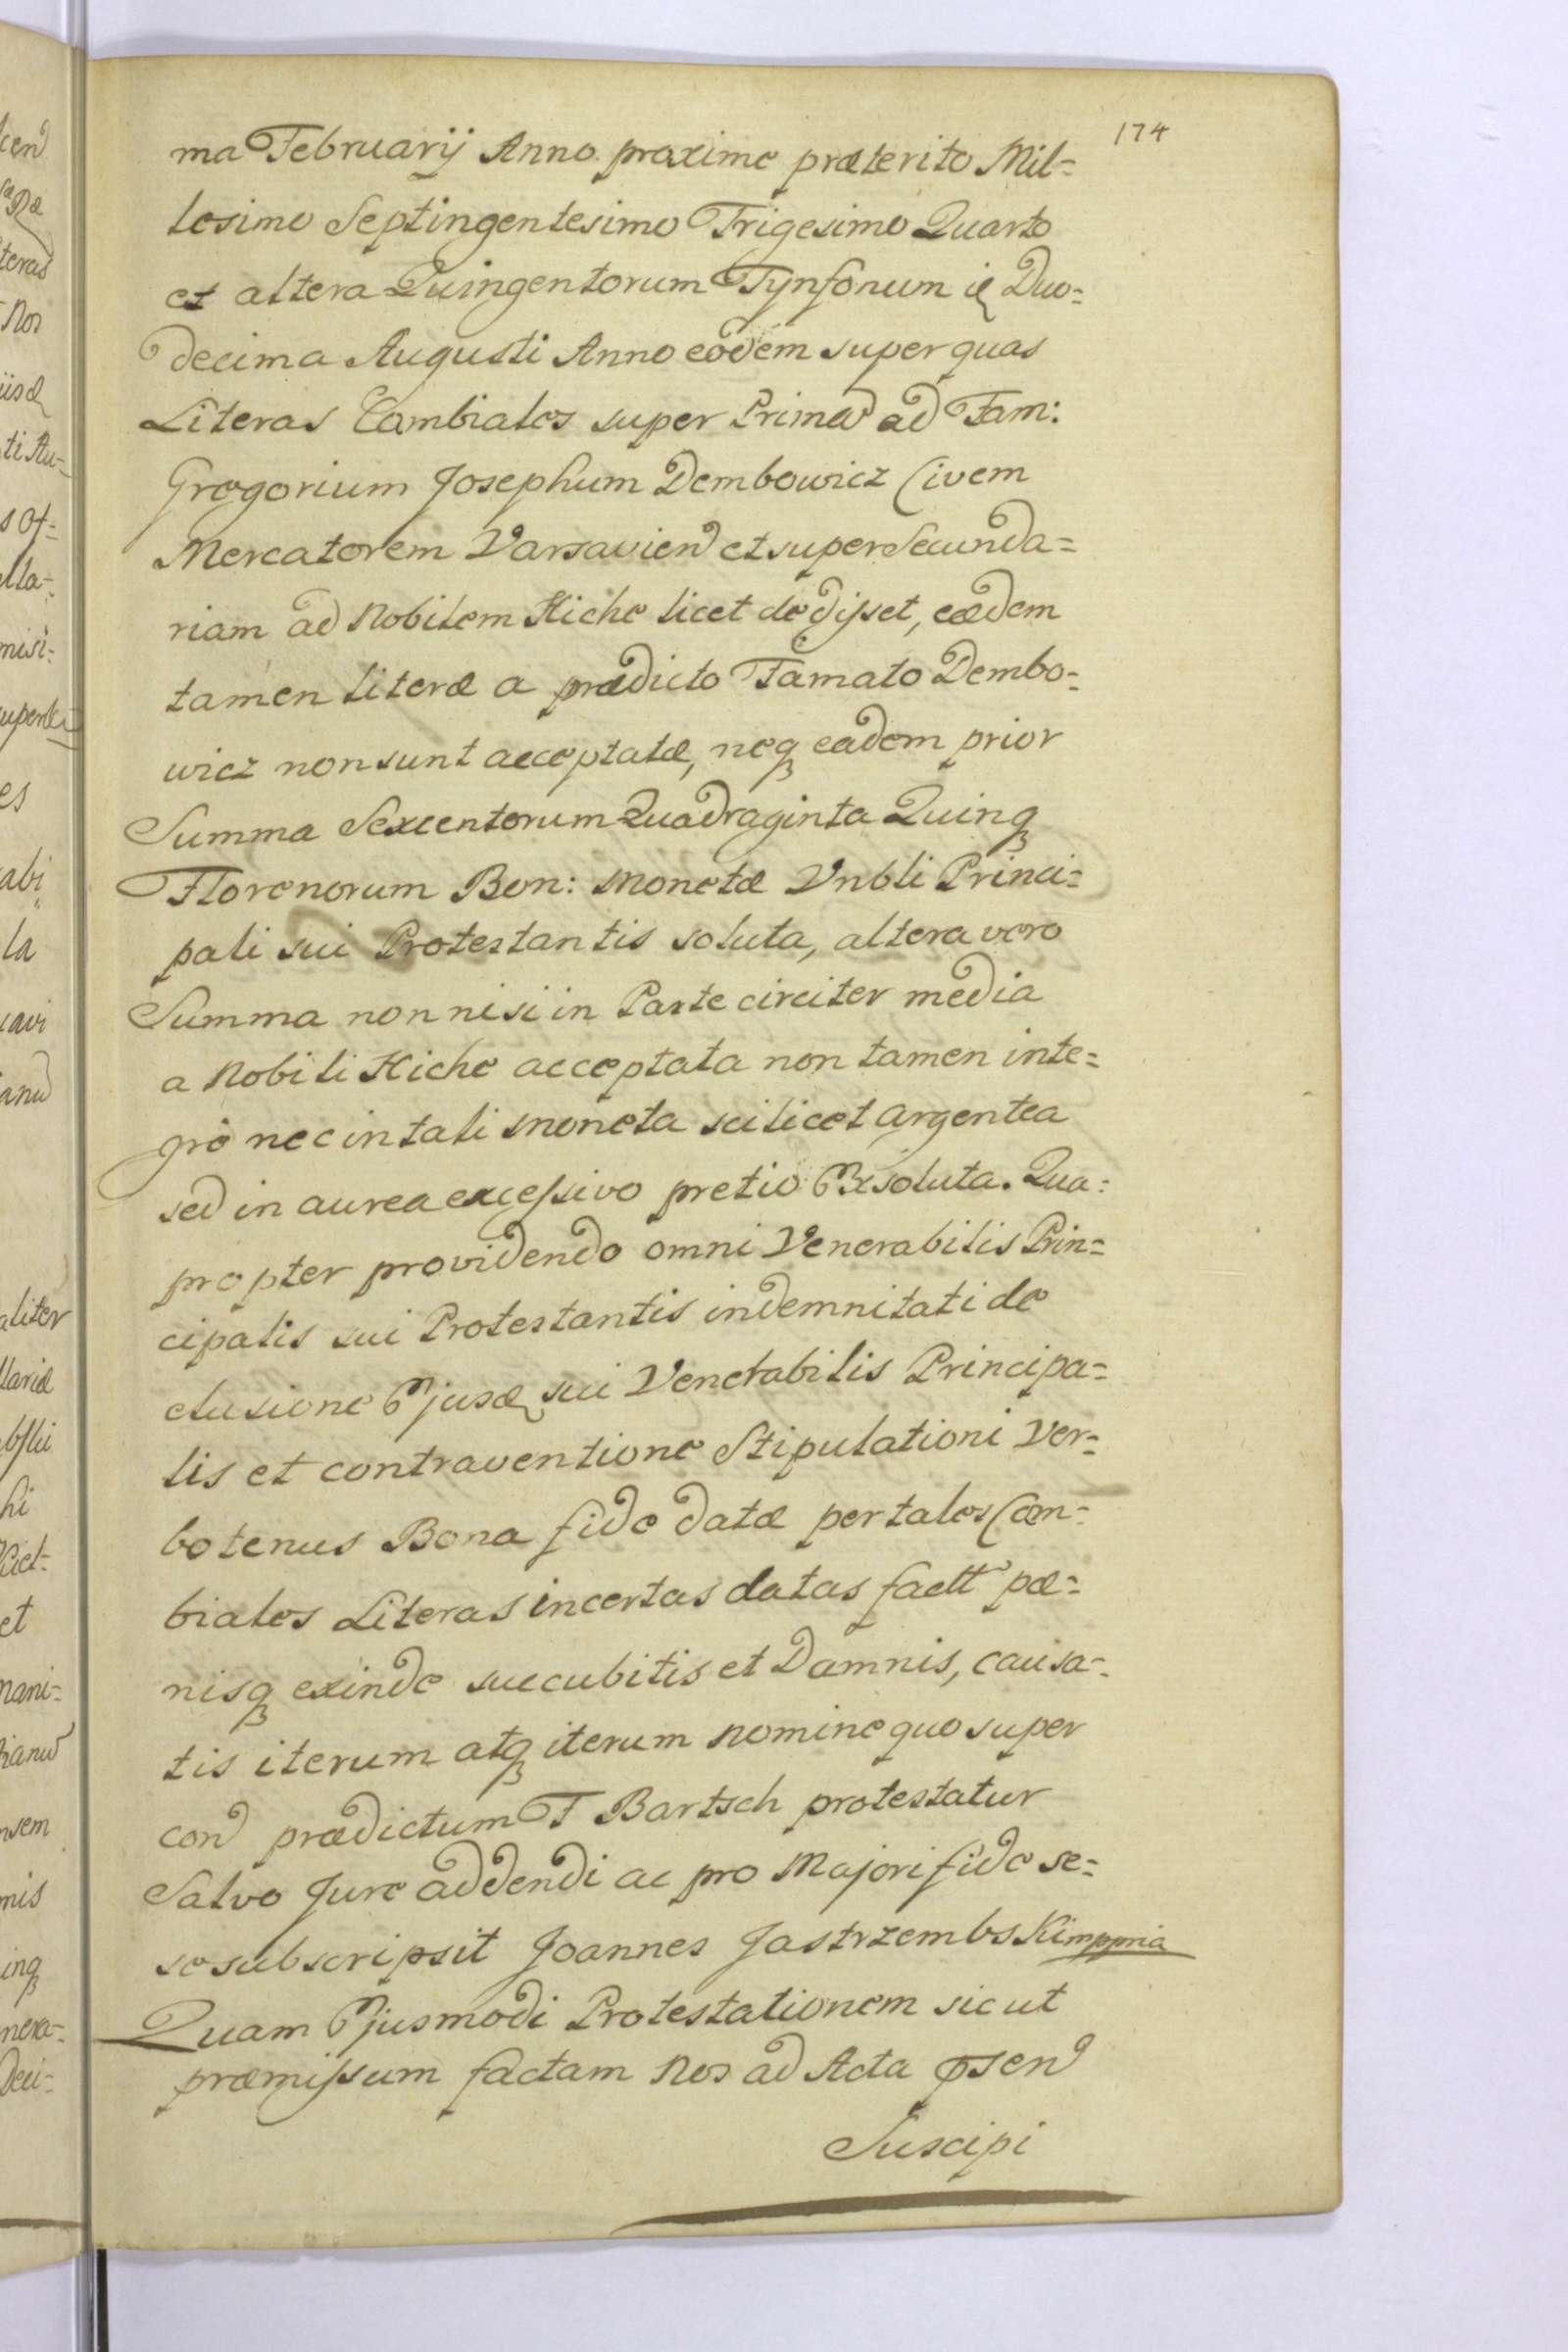 174
ma Februarij Anno proxime præterito Mil=
lesimo Septingentesimo Trigesimo Quarto
et altera Quingentorum Tynfonum Duo=
decima Augusti Anno eodem super quas
Literas Cambiales super Primã ad Fam:
Gregorium Josephum Dembowicz Civem
Mercatorem Varsavien et super Secunda=
riam ad Nobilem Hiche licet dedisset, eædem
tamen literæ a prædicto Famato Dembo=
wicz non sunt acceptatæ, neq eadem prior
Summa Sexcentorum Quadraginta Quinq
Florenorum Bon: Monetæ Vnbli Princi=
pali sui Protestantis soluta, altera vero
Summa non nisi in Parte circiter media
a Nobili Hiche acceptata non tamen inte=
grò nec in tali Moneta scilicet argentea
sed in aurea excessivo pretio Exsoluta. Qua=
propter providendo omni Venerabilis Prin=
cipalis sui Protestantis indemnitati de
elusione Ejusd sui Venerabilis Principa=
lis et contraventione Stipulationi Ver=
botenus Bona fide datæ per tales Cam=
biales Literas incertas datas factt pæ=
nisq exinde succubitis et Damnis, causa=
tis iterum atq iterum nomine quo super
con prædictum F Bartsch protestatur
Salvo Jure addendi ac pro Majori fide se=
se subscripsit Joannes Jastrzembski mppria
Quam Ejusmodi Protestationem sicut
præmissum factam Nos ad Acta psen
Suscipi